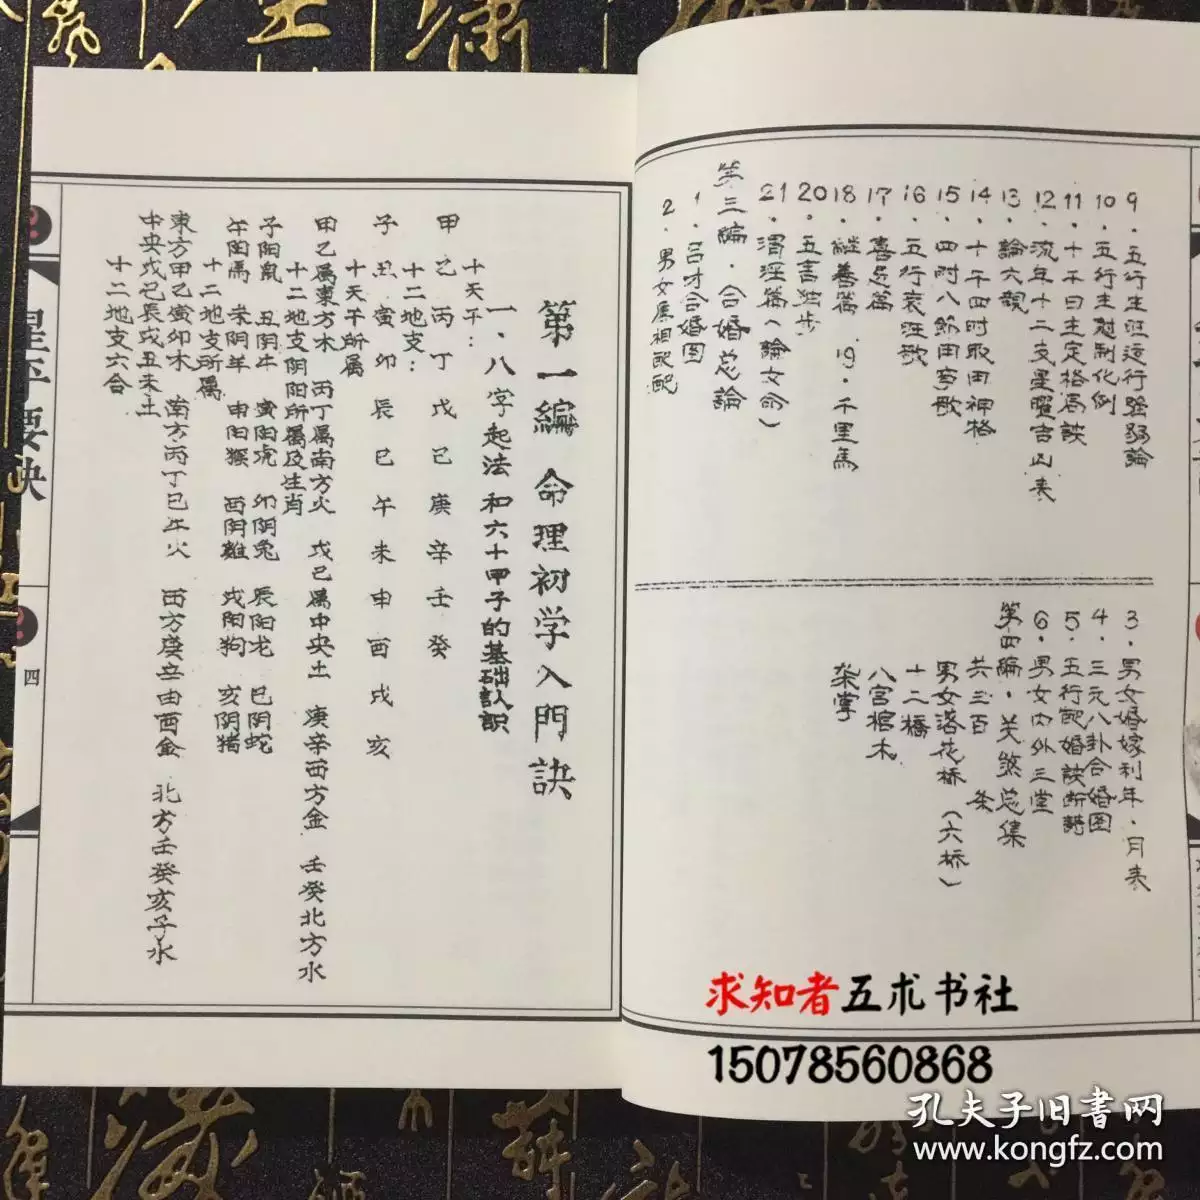 9．五行生旺运行强弱論
10．五行生尅制化例
11．十干日主定格局訣
12．流年十二支星曜吉凶表
13．論六親
14．十干四时取用神格
15．四时八節田亨歌
16．五行衰旺歌
17．喜忌篇
18．継善篇　19．千里馬
20．五言独步
21．渭泾篇（論女命）
第三編．合婚总論
1．吕才合婚图
2．男女属相配配
3．男女婚嫁利年．月表
4．三元八卦合婚图
5．五行配婚訣断詩
6．男女内外三堂
第四編．关煞总集
共三百　条
男女落花桥（六桥）
十二橋
八宫棺木
架掌
第一編　命理初学入門訣
一．八字起法和六十甲子的基础认识
十天干：
甲乙丙丁戊己庚辛壬癸
十二地支：
子丑寅卯辰巳午未申酉戌亥
十天干所属
甲乙属東方木　丙丁属南方火　戊己属中央土　庚辛西方金　壬癸北方水
十二地支阴阳所属及生肖
子阳鼠　丑阴牛　寅阳虎　卯阴兔　辰阳龙　巳阴蛇
午阳馬　未阴羊　申阳猴　酉阴雞　戌阳狗　亥阴猪
十二地支所属
東方甲乙寅卯木　南方丙丁巳午火　西方庚辛申酉金　北方壬癸亥子水
中央戊己辰戌丑未土
十二地支六合
星平要诀
四
求知者五术书社
15078560868
孔夫子旧書网
www.kongfz.com